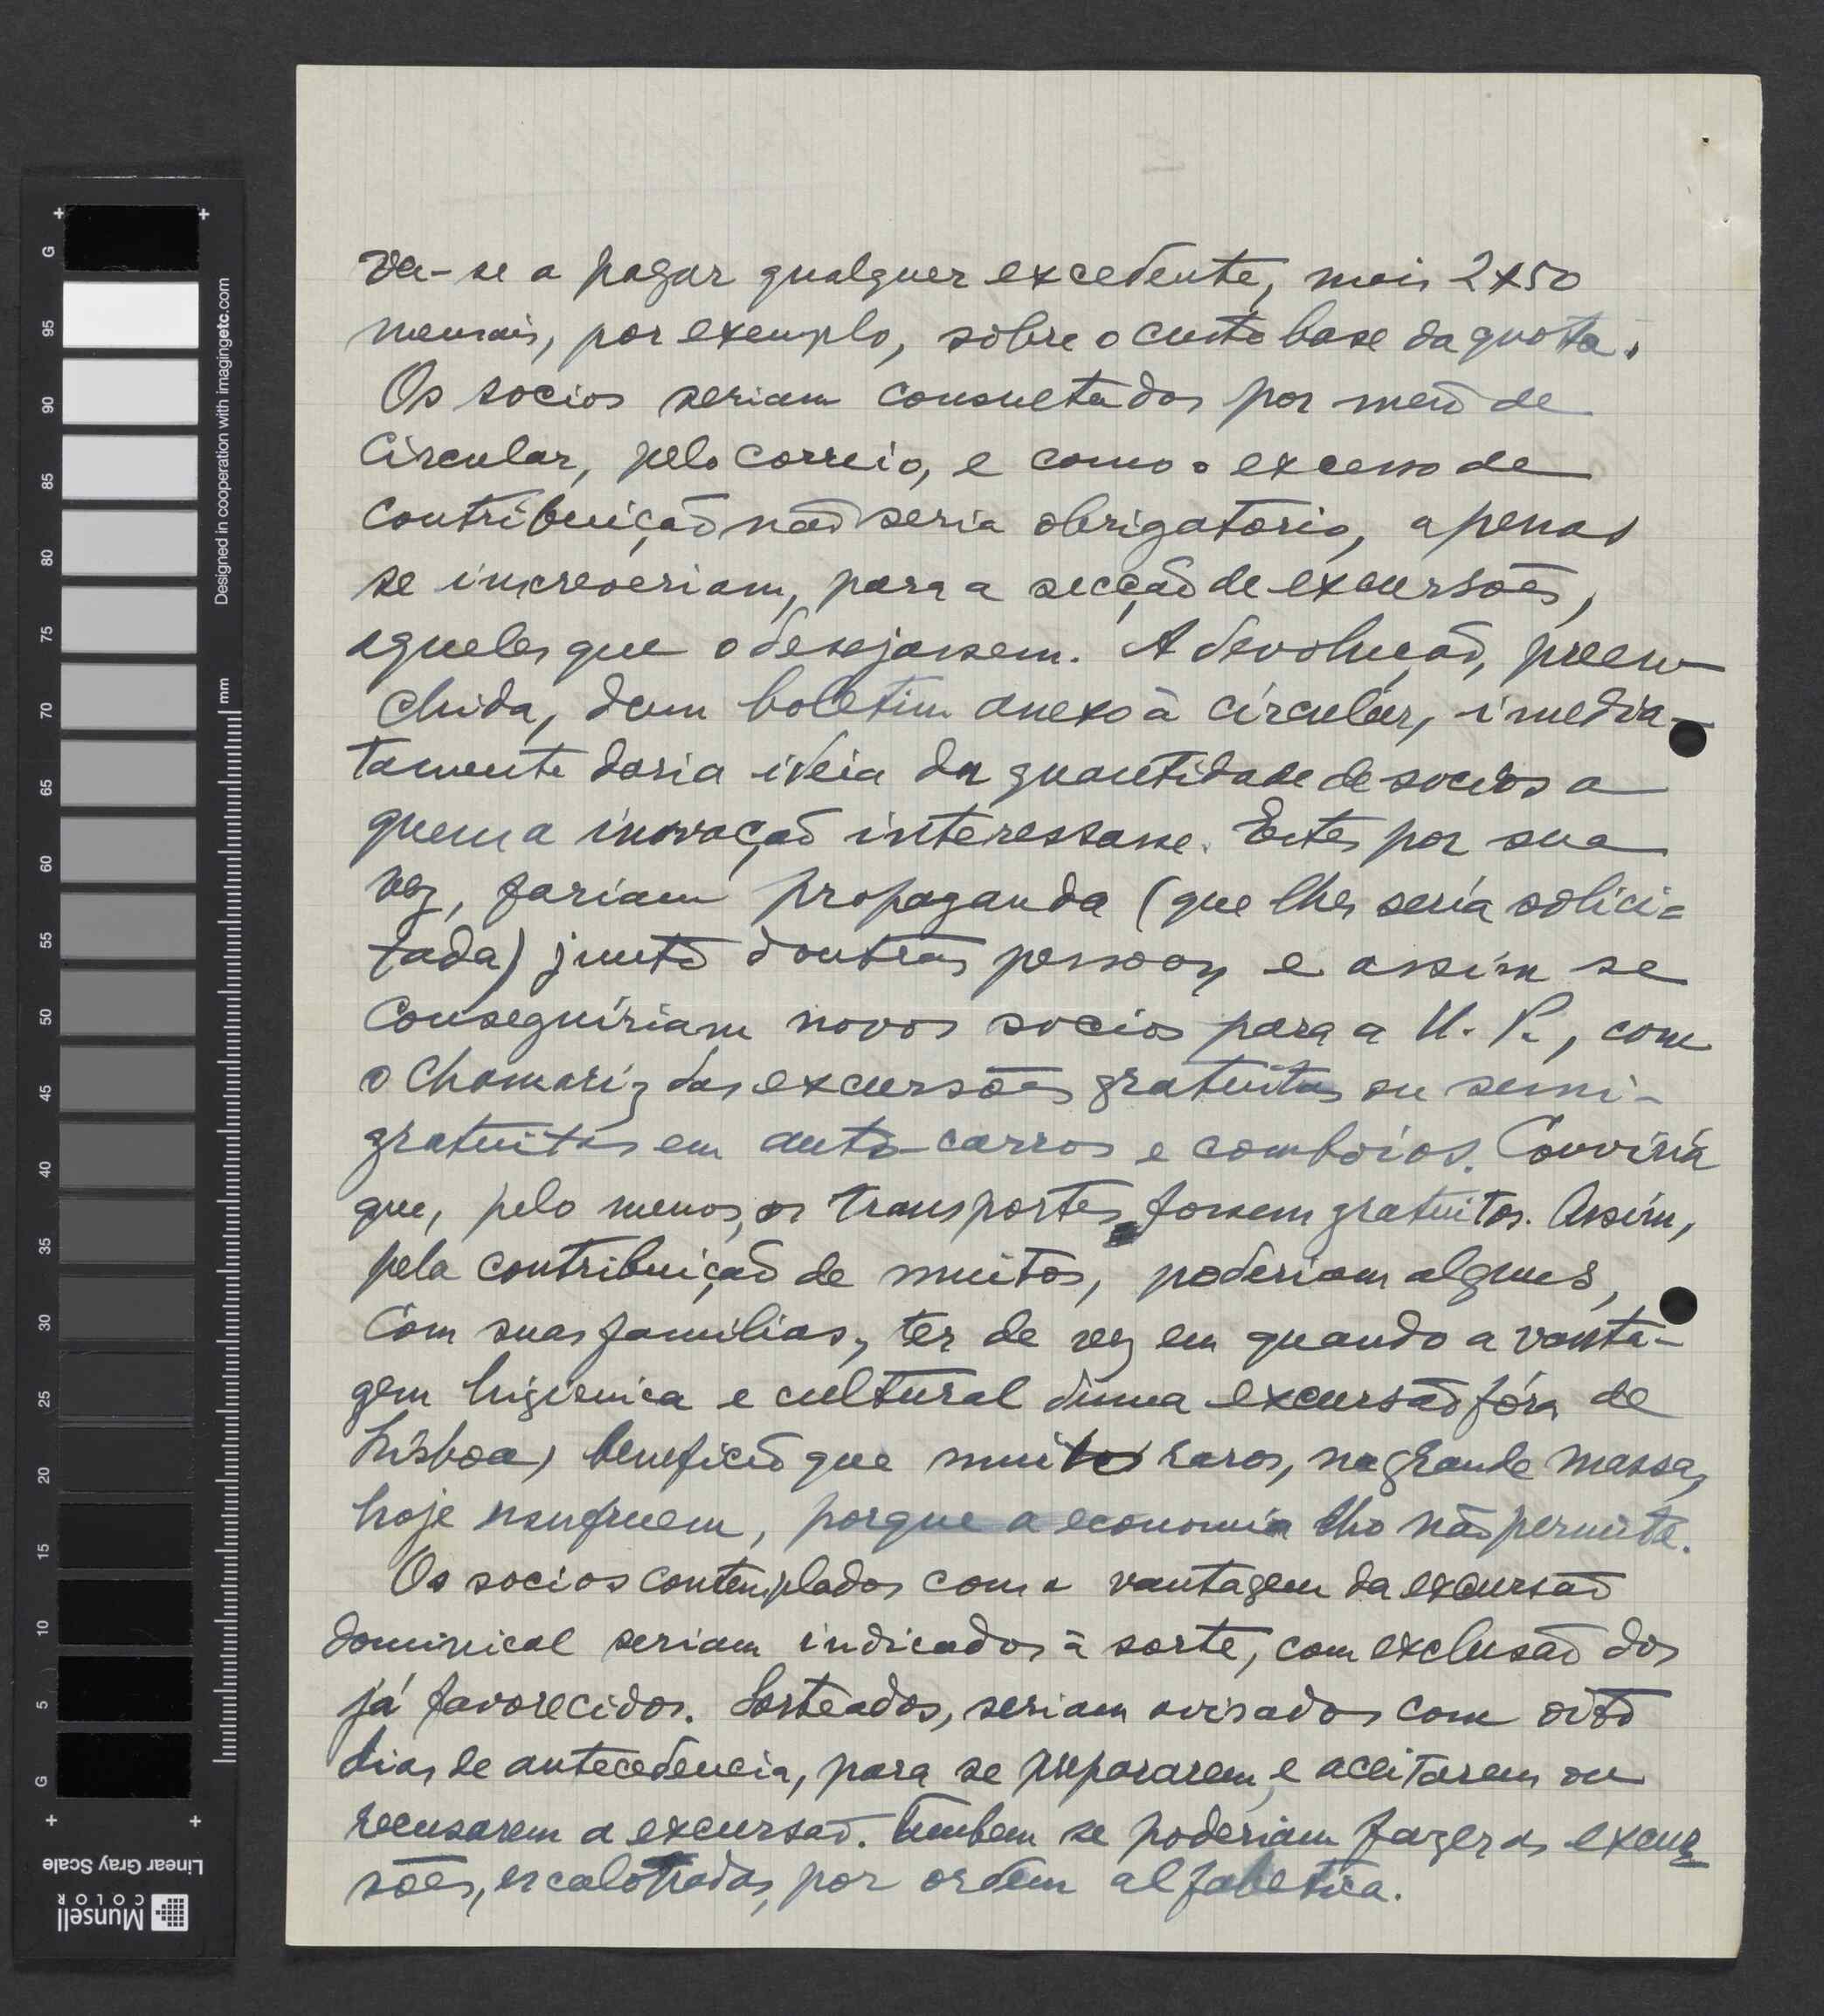 va-se a pagar qualquer excedente, mais 2$50
mensais, por exemplo, sôbre o custo base da quota.
Os socios seriam consultados por meio de
Circular, pelo correio, e como o excesso de
contribuição não seria obrigatorio, apenas
se increveriam, para a secção de excursões,
aqueles que o desejassem. A devolução, preen-
chida, dum boletim anexo à circular, imedia-
tamente daria ideia da quantidade de socios a
quem a inovação interessasse. Estes por sua
vez, fariam propaganda (que lhes seria solici-
tada) junto doutras pessoas e assim se
conseguiriam novos socios para a U. P., com
o chamariz das excursões gratuitas ou semi-
gratuitas em auto-carros e comboios. Conviria
que, pelo menos, os transportes fossem gratuitos. Assim,
pela contribuição de muitos, poderiam alguns,
com suas familias, ter de vez em quando a vanta-
gem higienica e cultural duma excursão fóra de
Lisboa, beneficio que muito raros, na grande massa,
hoje usufruem, porque a economia lho não permite.
Os socios contemplados com a vantagem da excursão
dominical seriam indicados à sorte, com exclusão dos
já favorecidos. Sorteados, seriam avisados com oito
dias de antecedencia, para se prepararem, e aceitarem ou
recusarem a excursão. Tambem se poderiam fazer as excur
sões, escalonadas, por ordem alfabetica.
Designed in cooperation with imagingetc.com
mm
G
95
90
85
80
75
70
65
60
55
50
45
40
35
30
25
20
15
10
5
G
Linear Gray Scale
Munsell
COLOR